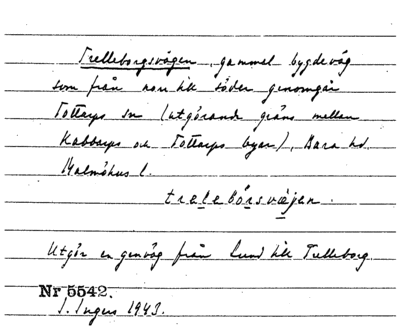 Trelleborgsvägen, gammal bygdeväg
som från norr till söder genomgår
Tottarps sn (utgörande gräns mellan
Kabbarps och Tottarps byar), Bara hd.
Malmöhus l.
trelebörsvæjen.
Utgör en genväg från Lund till Trelleborg.
Nr 5542.
I. Ingers 1943.